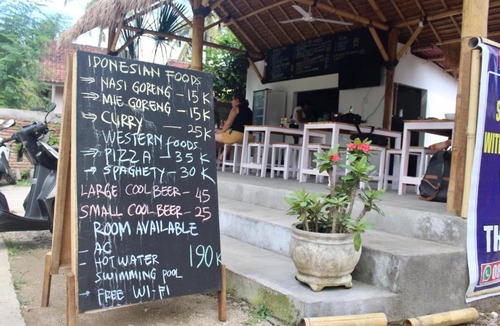 IDONESIAN FOODS
→ NASI GORENG - 15 K
→ MIE GORENG - 15 K
→ CURRY - 25 K
WESTERN FOODS
→ PIZZA - 35 K
→ SPAGHETY - 30 K
LARGE COOL BEER - 45
SMALL COOL BEER - 25
ROOM AVAILABLE
- AC
- HOT WATER 190 K
SWIMMING POOL
- FREE WI-FI
WITH